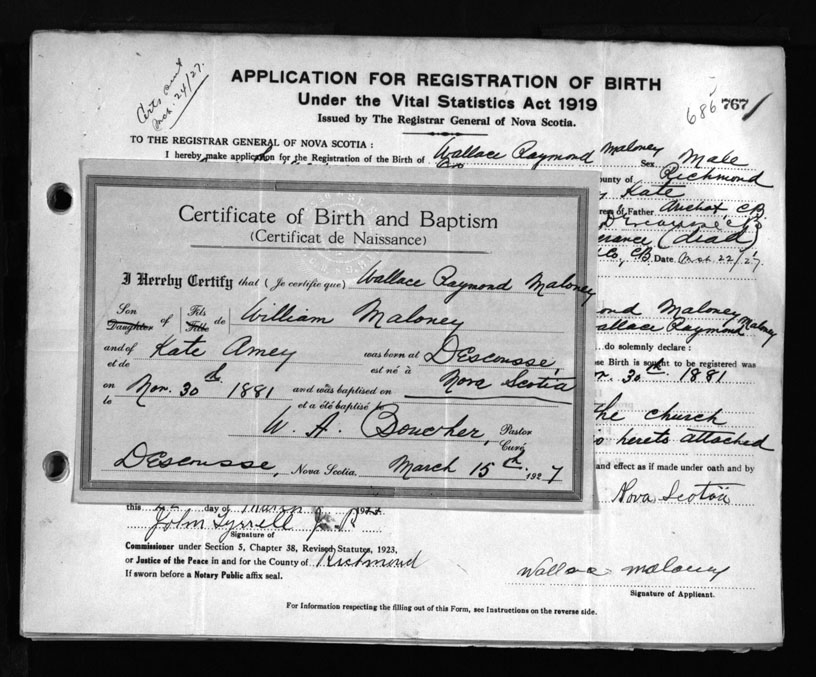 Certs sent
Mch. 24/27.
APPLICATION FOR REGISTRATION OF BIRTH
Under the Vital Statistics Act 1919
Issued by The Registrar General of Nova Scotia.
686 767
TO THE REGISTRAR GENERAL OF NOVA SCOTIA :
I hereby make application for the Registration of the Birth of Wallace Raymond Maloney Sex Male
ounty of Richmond
Kate
of Father Arichat, C.B.
(dead)
Co., C.B. Date Mch 22/27.
Certificate of Birth and Baptism
(Certificat de Naissance)
I Hereby Certify that (Je certifie que) Wallace Raymond Maloney
Son Daughter of Fils Fille de William Maloney
and of et de Kate Amey was born at est né à Descousse,
on le Nov. 30th 1881 and was baptised on et a été baptisé le Nova Scotia
W. A. Boucher, Pastor Curé
Descousse, Nova Scotia. March 15th 1927
ond Maloney
Wallace Raymond Maloney
do solemnly declare :
se Birth is sought to be registered was
30th 1881
the church
is hereto attached
and effect as if made under oath and by
Nova Scotia
this day of March 192
John Tyrrell J. P.
Signature of
Commissioner under Section 5, Chapter 38, Revised Statutes, 1923,
or Justice of the Peace in and for the County of Richmond
If sworn before a Notary Public affix seal.
Wallace Maloney
Signature of Applicant.
For Information respecting the filling out of this Form, see Instructions on the reverse side.